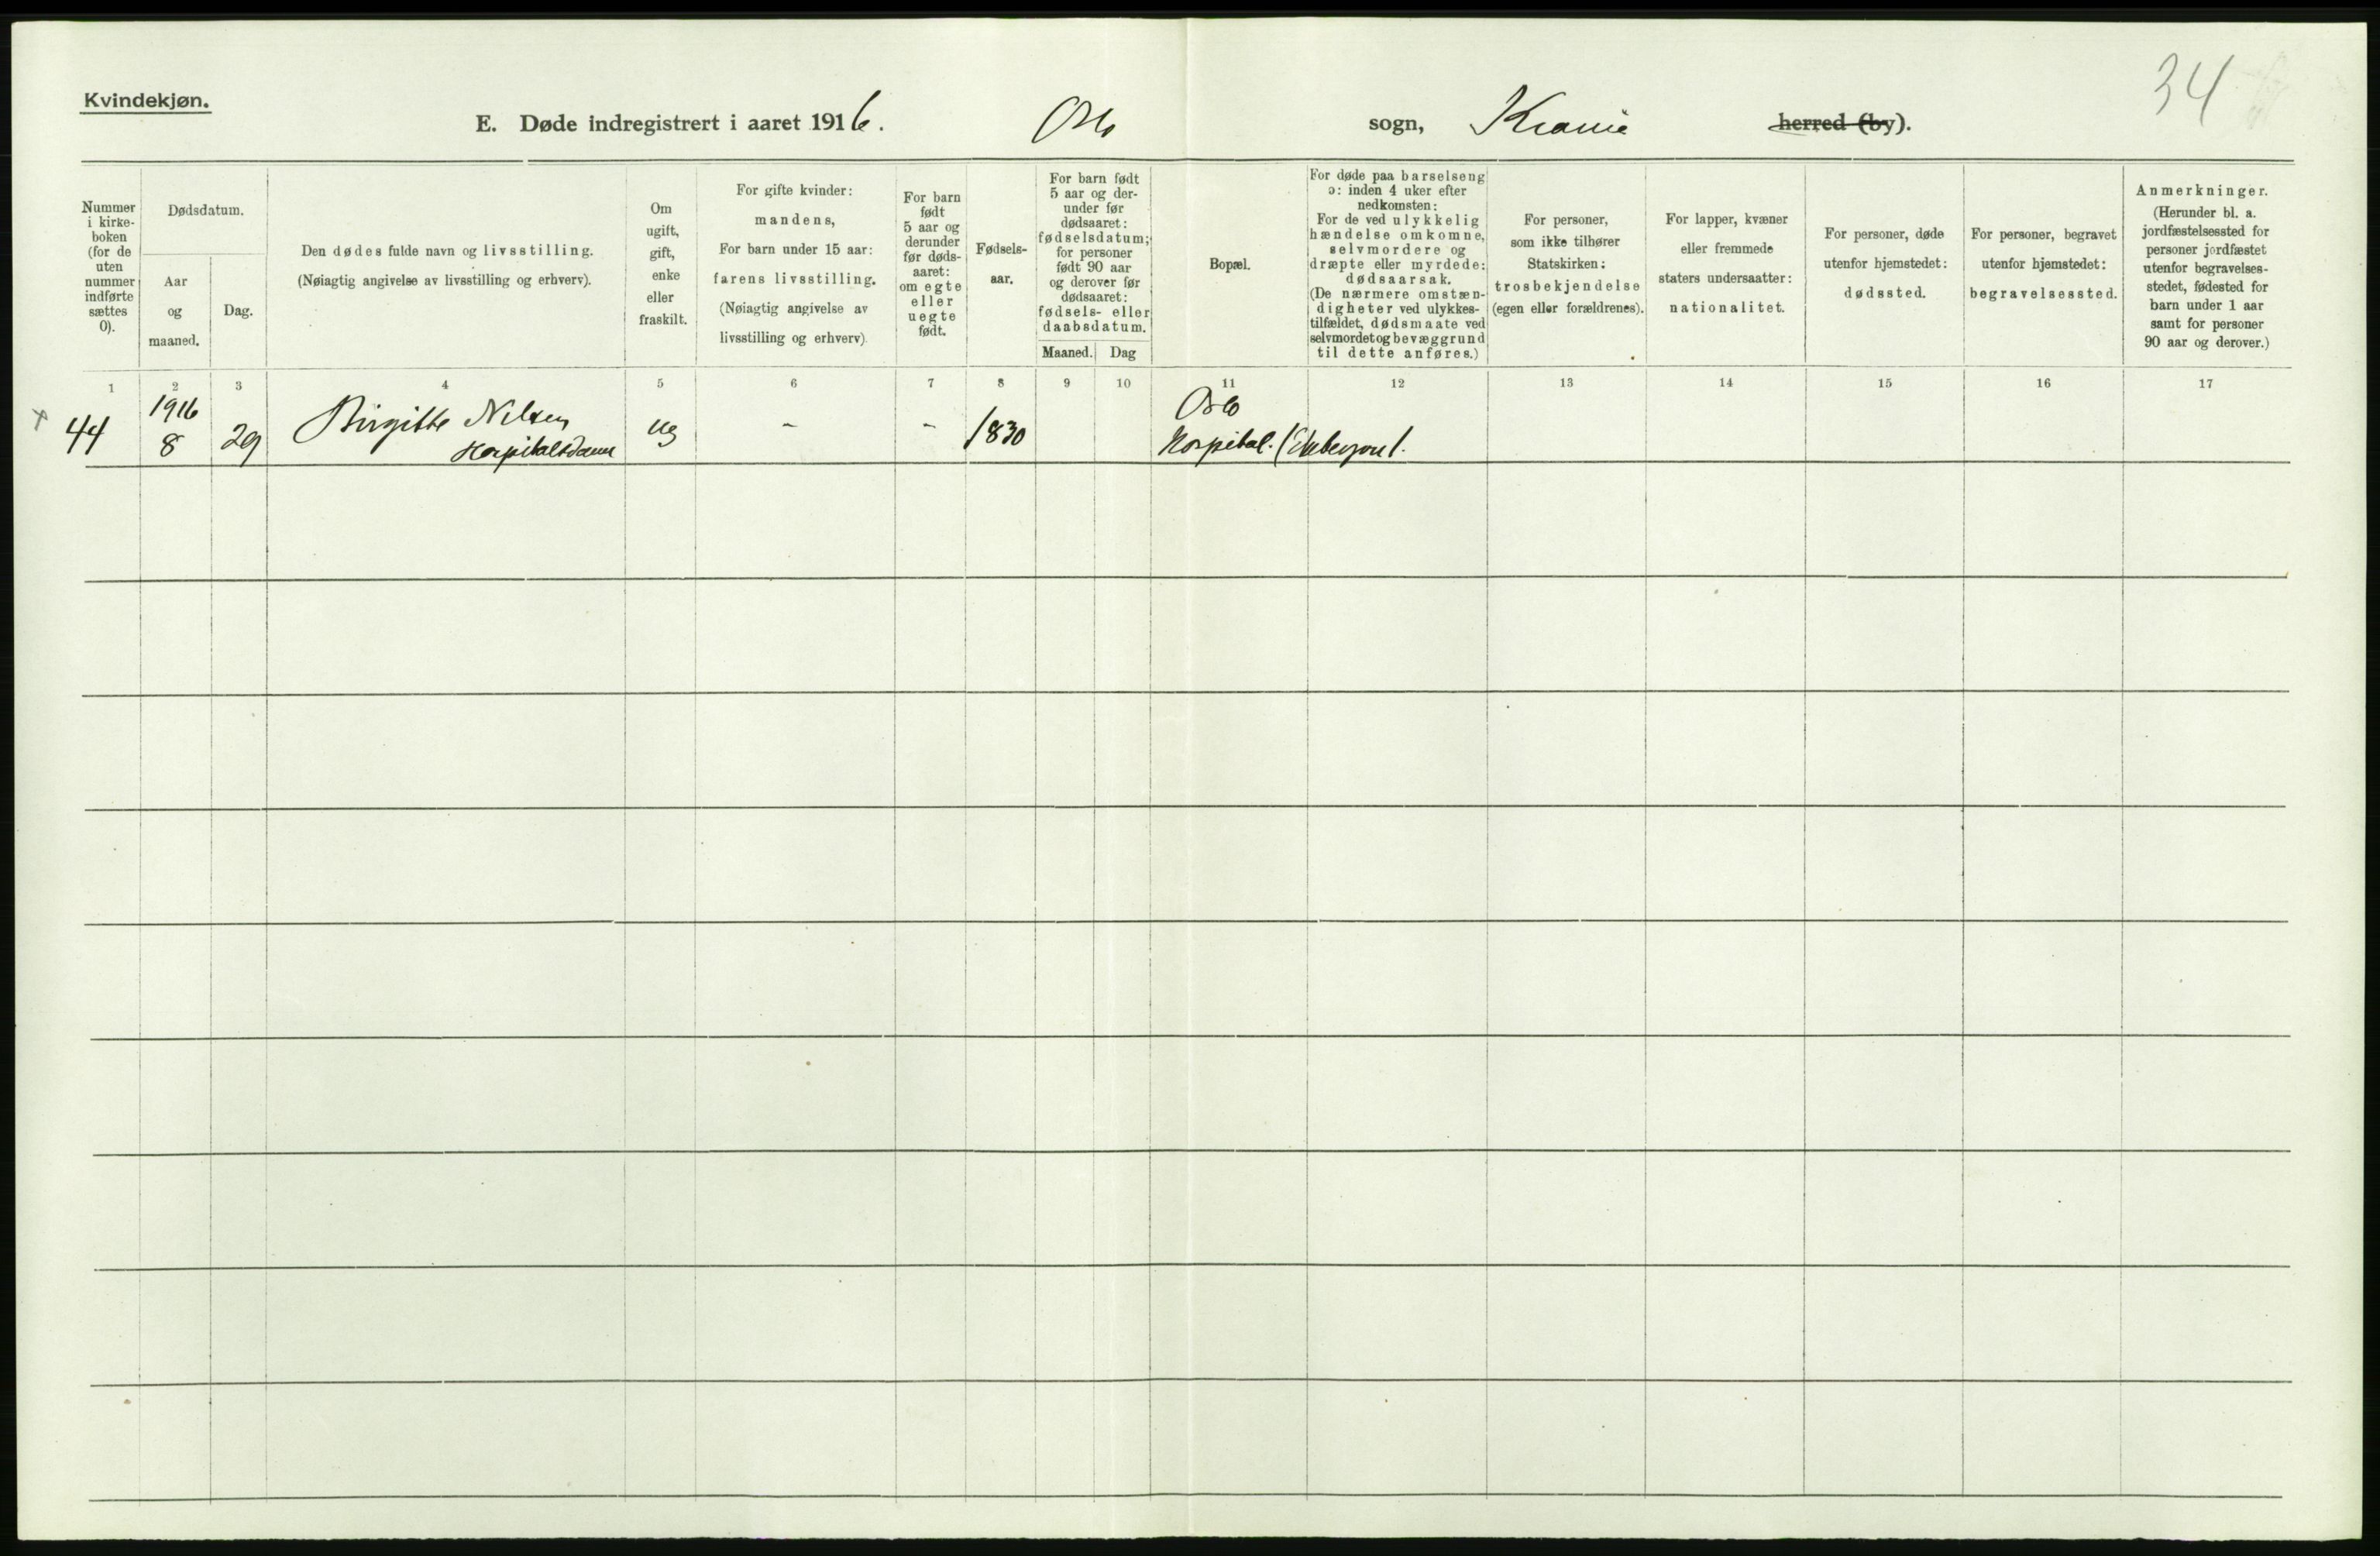 Kvindekjøn.
34
E. Døde indregistrert i aaret 1916. Oslo sogn, Krania herred (by).
Nummer
i kirke-
boken
(for de
uten
nummer
indførte
sættes
0).
Dødsdatum.
Aar
og
maaned.
Dag.
Den dødes fulde navn og livsstilling.
(Nøiagtig angivelse av livsstilling og erhverv).
Om
ugift,
gift,
enke
eller
fraskilt.
For gifte kvinder:
mandens,
For barn under 15 aar:
farens livsstilling.
(Nøiagtig angivelse av
livsstilling og erhverv).
For barn
født
5 aar og
derunder
før døds-
aaret:
om egte
eller
uegte
født.
Fødsels-
aar.
For barn født
5 aar og der-
under før
dødsaaret:
fødselsdatum;
for personer
født 90 aar
og derover før
dødsaaret:
fødsels- eller
daabsdatum.
Maaned.
Dag
Bopæl.
For døde paa barselseng
ɔ: inden 4 uker efter
nedkomsten:
For de ved ulykkelig
hændelse omkomne,
selvmordere og
dræpte eller myrdede:
dødsaarsak.
(De nærmere omstæn-
digheter ved ulykkes-
tilfældet, dødsmaate ved
selvmordet og bevæggrund
til dette anføres.)
For personer,
som ikke tilhører
Statskirken:
trosbekjendelse
(egen eller forældrenes).
For lapper, kvæner
eller fremmede
staters undersaatter:
nationalitet.
For personer, døde
utenfor hjemstedet:
dødssted.
For personer, begravet
utenfor hjemstedet:
begravelsessted.
Anmerkninger.
(Herunder bl. a.
jordfæstelsessted for
personer jordfæstet
utenfor begravelses-
stedet, fødested for
barn under 1 aar
samt for personer
90 aar og derover.)
1 2 3 4 5 6 7 8 9 10 11 12 13 14 15 16 17
1916 Oslo
44 8 29 Birgitte Nilsen ug - - 1830
Hospital.